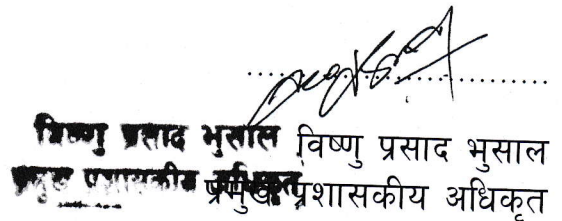 विष्णु प्रसाद भुसाल विष्णु प्रसाद भुसाल
प्रमुख प्रशासकीय अधिकृत प्रमुख प्रशासकीय अधिकृत